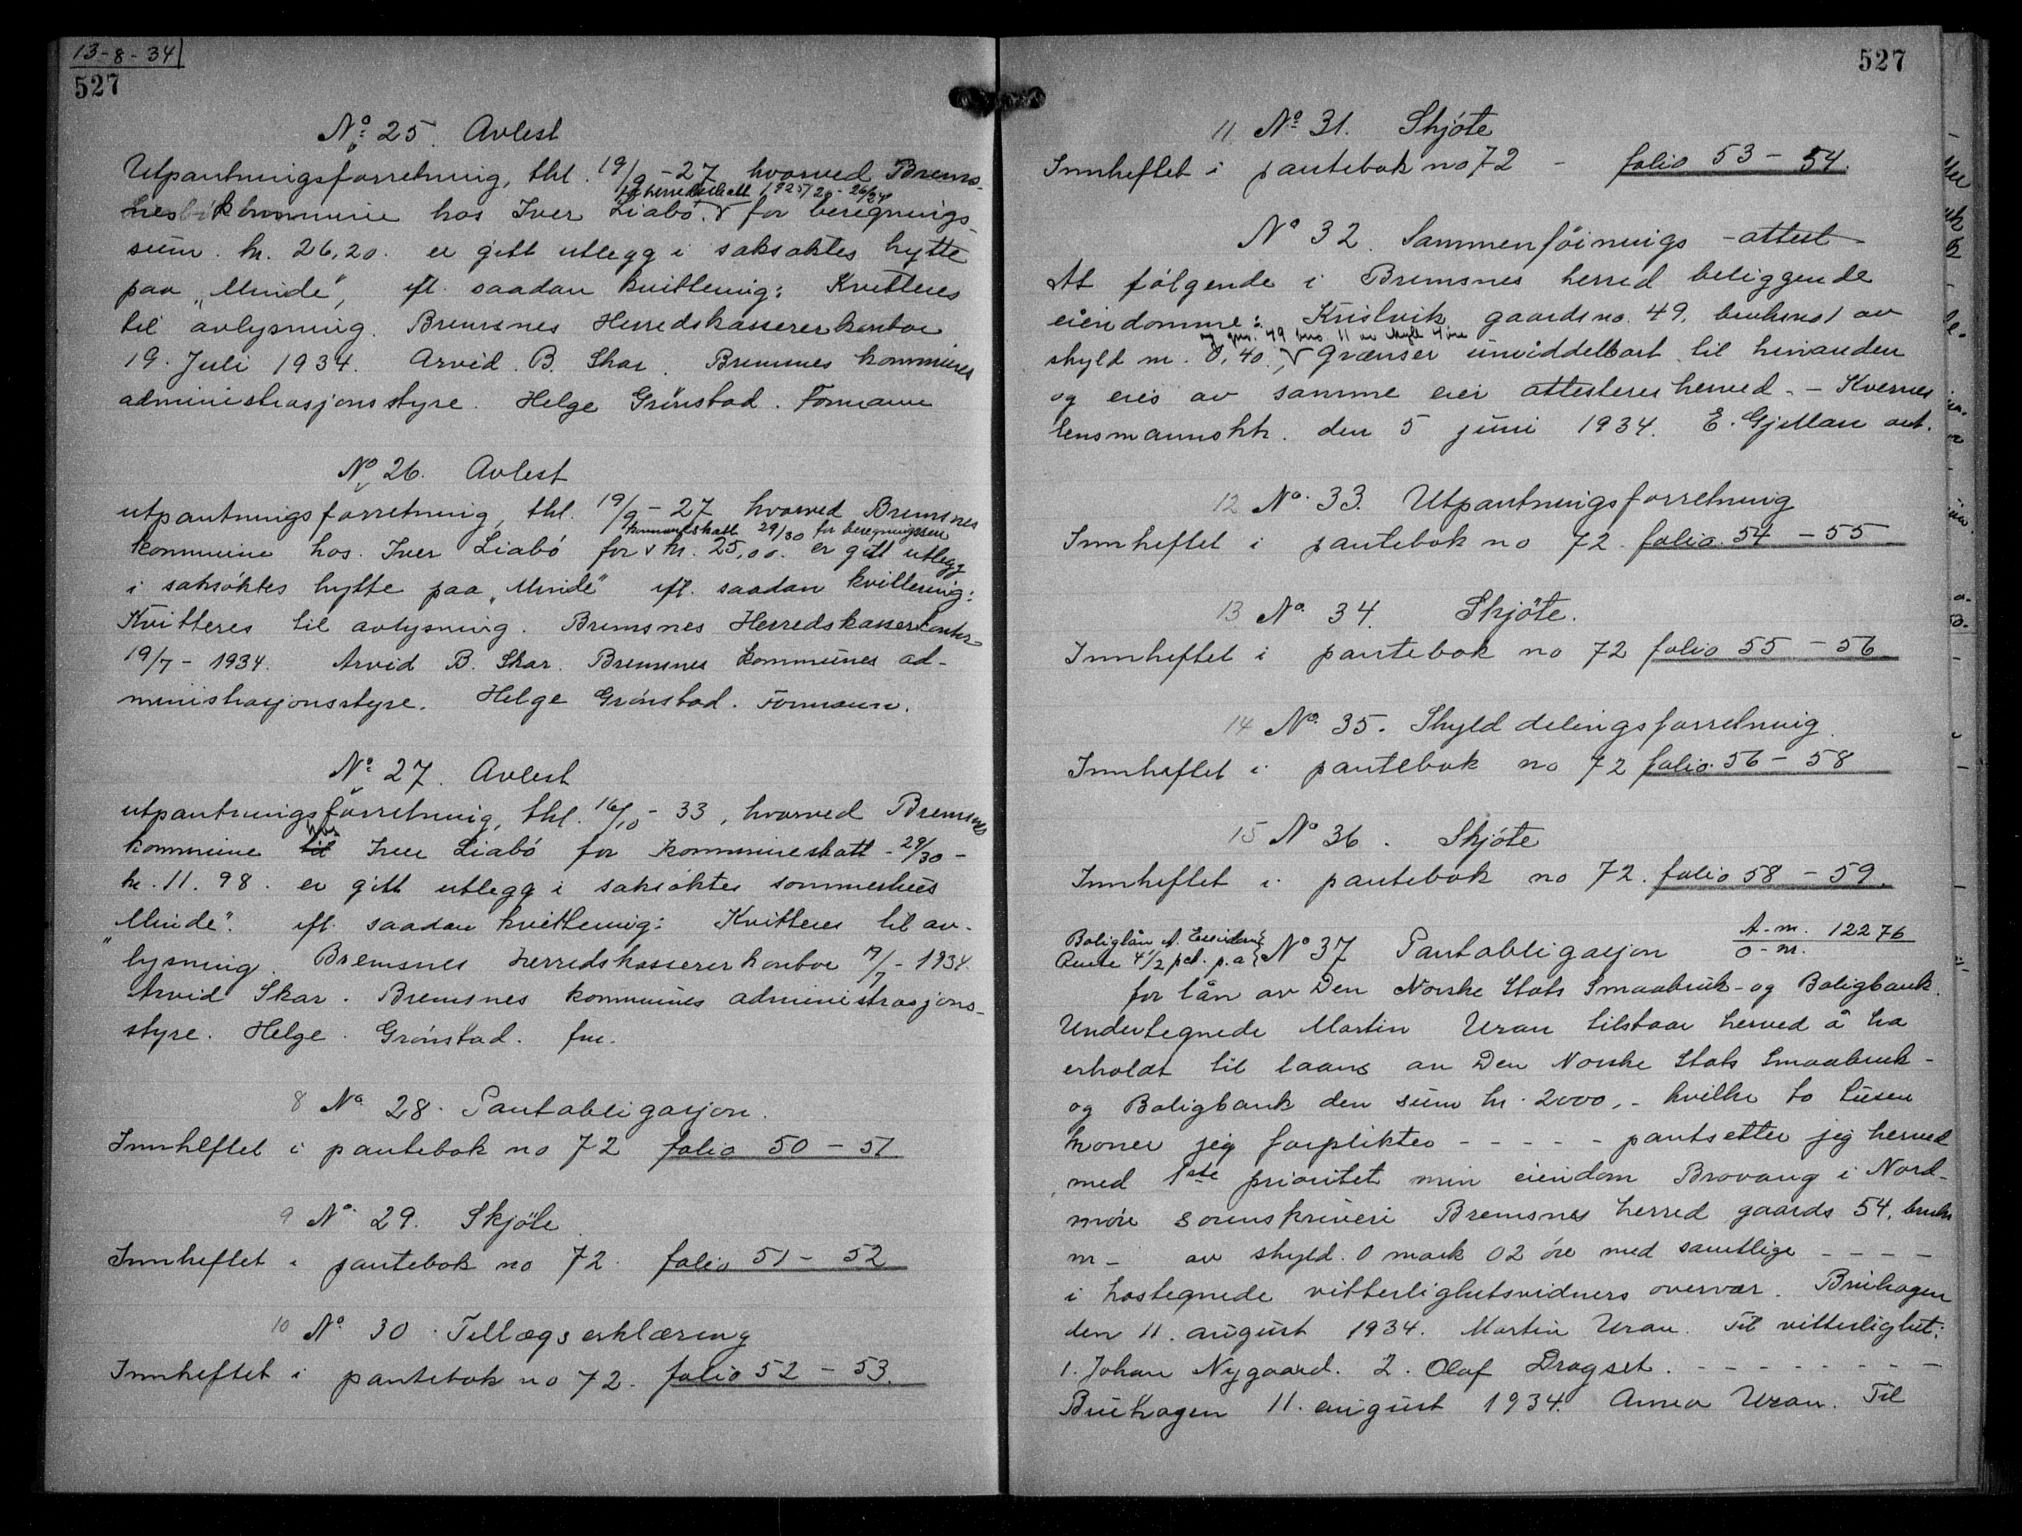 13-8-34
527
No 25. Avlest
Utpantningsforretning, thl. 19/9-27 hvorved Brems-
for herredsskatt 1925/26 - 26/27
nes kommune hos Iver Liabö. V for beregnings-
sum. kr. 26,20. er gitt utlegg i saksøktes hytte
paa „Minde", ifl. saadan kvittering: Kvitteres
til avlysning. Bremsnes Herredskassererkontor
19. Juli 1934. Arvid B. Skar. Bremsnes kommunes
administrasjonsstyre. Helge Grönstad. Formann
No 26. Avlest
utpantningsforretning, thl. 19/9-27 hvorved Bremsnes
kommuneskatt 29/30 for beregningssum
kommune hos. Iver Liabö for v kr. 25,00. er gitt utlegg
i saksöktes hytte paa „Minde" ifl. saadan kvittering:
Kvitteres til avlysning. Bremsnes Herredskassererkontor
19/7-1934. Arvid B. Skar. Bremsnes kommunes ad-
ministrasjonsstyre. Helge Grönstad. Formann.
No 27. Avlest
utpantningsforretning, thl. 16/10-33, hvorved Bremsnes
hos
kommune til Iver Liabö for kommuneskatt - 29/30 -
kr. 11.98. er gitt utlegg i saksöktes sommerhus
„Minde". ifl. saadan kvittering: Kvitteres til av-
lysning. Bremsnes herredskassererkontor 19/7-1934.
Arvid Skar. Bremsnes kommunes administrasjons-
styre. Helge. Grönstad. fm.
8 No 28. Pantobligasjon.
Innheftet i pantebok no 72 folio 50 - 51
9 No 29. Skjöte
Innheftet i pantebok no 72. folio 51 - 52
10 No 30. Tillægserklæring
Innheftet i pantebok no 72. folio 52 - 53.
527
11 No 31. Skjöte
Innheftet i pantebok no 72 - folio 53 - 54.
No 32. Sammenföinings - attest
At følgende i Bremsnes herred beliggende
eiendomme: Kristvik gaardsno. 49, bruksno 1 av
og gno. 49 bno 11 av skyld 4 øre
skyld m. 0,40., V Grænser umiddelbart til hinanden
og eies av samme eier attesteres herved. - Kvernes
lensmannskt. den 5 juni 1934. E. Gjellan aut.
12 No 33. Utpantningsforretning
Innheftet i pantebok no 72. folio 54 - 55
13 No 34. Skjöte.
Innheftet i pantebok no 72 folio 55 - 56
14 No 35. Skylddelingsforretning.
Innheftet i pantebok no 72 folio 56 - 58
15 No 36. Skjöte
Innheftet i pantebok no 72. folio 58 - 59.
Boliglån A.
Rente 4 1/2 pct. p.a. No 37 Pantobligasjon A-nr. 12276
O-nr.
for lån av Den Norske Stats Smaabruk- og Boligbank.
Undertegnede Martin Uran tilstaar herved å ha
erholdt til laans av Den Norske Stats Smaabruk-
og Boligbank den sum kr. 2000,- hvilke to tusen
kroner jeg forplikter - - - - - pantsetter jeg herved
med 1ste prioritet min eiendom Brovang i Nord-
möre sorenskriveri Bremsnes herred gaards 54, bruks
nr - av skyld. 0 mark 02 öre med samtlige - - - -
i hostegnede vitterlighetsvidners overvær. Bruhagen
den 11. august 1934. Martin Uran. Til vitterlighet:
1. Johan Nygaard. 2. Olaf Dragset. - - - - - - - -
Bruhagen 11. august 1934. Anna Uran. Til